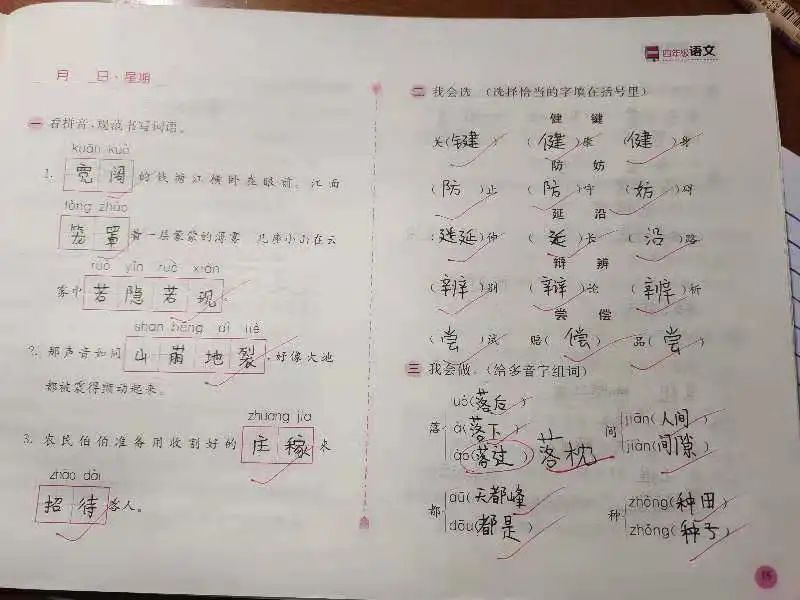 月 日·星期
一 看拼音，规范书写词语。
kuān kuò
1. 宽阔 的钱塘江横卧在眼前。江面
lǒng zhào
笼罩 着一层蒙蒙的薄雾 几座小山在云
ruò yǐn ruò xiàn
雾中 若隐若现 。
shān bēng dì liè
2. 那声音如同 山崩地裂 ，好像大地
都被震得颤动起来。
zhuāng jia
3. 农民伯伯准备用收割好的 庄稼 来
zhāo dài
招待 客人。
四年级语文
二 我会选（选择恰当的字填在括号里）
健 键
关(键) (健)康 (健)身
防 妨
(防)止 (防)守 (妨)碍
延 沿
(延)伸 (延)长 (沿)路
辩 辨
(辨)别 (辩)论 (辨)析
尝 偿
(尝)试 赔(偿) 品(尝)
三 我会做。（给多音字组词）
落 luò(落后)
là(落下)
lào(落过) 落枕
间 jiān(人间)
jiàn(间隙)
都 dū(天都峰)
dōu(都是)
种 zhòng(种田)
zhǒng(种子)
15